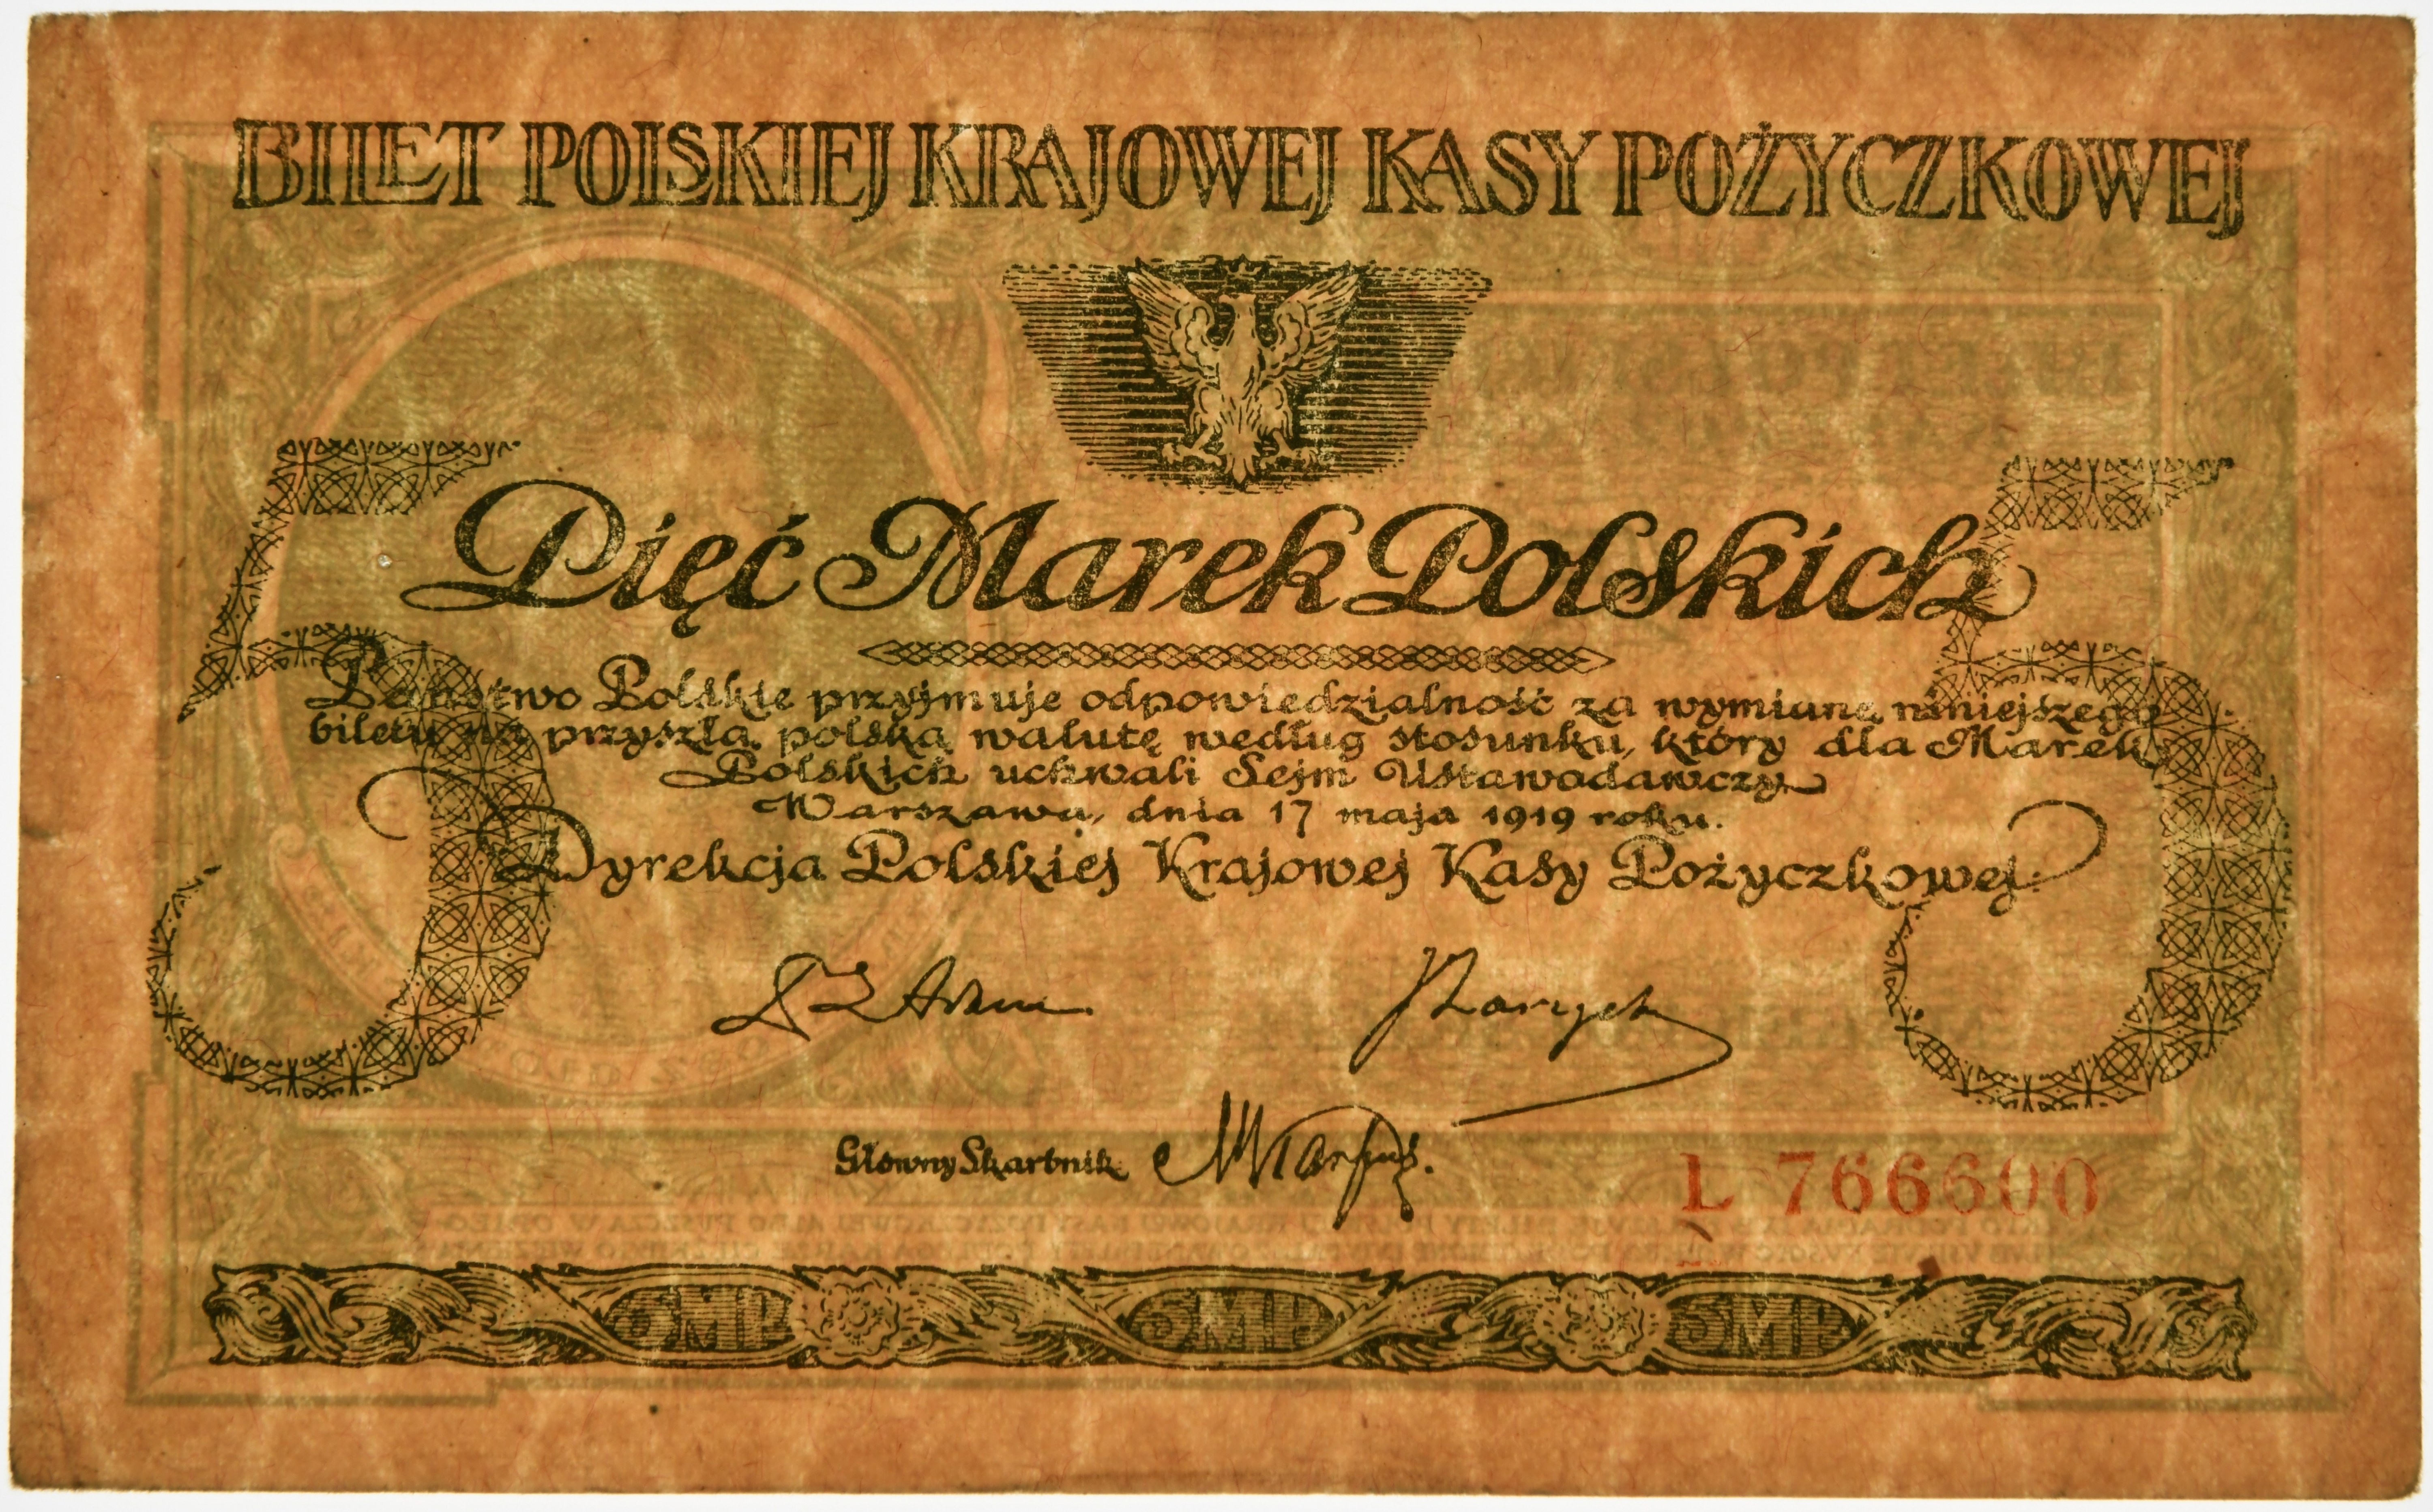 BILET POLSKIEJ KRAJOWEJ KASY POŻYCZKOWEJ
5 5
Pięć Marek Polskich
Państwo Polskie przyjmuje odpowiedzialność za wymianę niniejszego
biletu na przyszłą polską walutę według stosunku, który dla Marek
Polskich uchwali Sejm Ustawodawczy
Warszawa, dnia 17 maja 1919 roku.
Dyrekcja Polskiej Krajowej Kasy Pożyczkowej:
Główny Skarbnik
L 766600
5MP 5MP 5MP